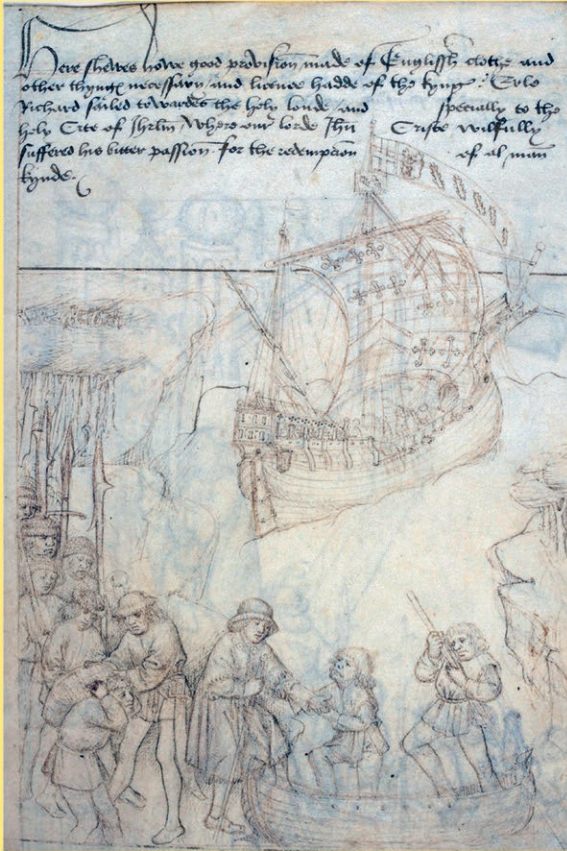 Here shewes howe good provision made of Englissh clothe and
other thynges necessary and licence hadde of the kyng : Erle
Richard sailed towardes the holy londe and specially to the
holy Cite of Jhrlm Where our lorde Jhu Criste wilfully
suffered his bitter passion for the redempcion of al man
kynde.